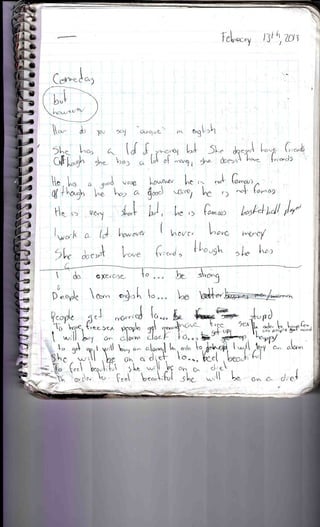 February 13th, 2013
but
however
How do you say "aunque" in english
She has a lot of money but She doesn't have friends
Although she has a lot of money, she doesn't have friends
He has a good voice however he is not famous
Although he has a good voice, he is not famous
He is very short but, he is famous basketball player
I work a lot however I never have money
She doesn't have friends though she has
I do exercise to... be strong
People learn english to... be
People get married to... be stupid
To have free sex people get
I will buy an alarm clock to... get up
I will buy an alarm
She will be on a diet to... feel beautiful
To feel beautiful she will be on a diet
In order to feel beautiful she will be on a diet